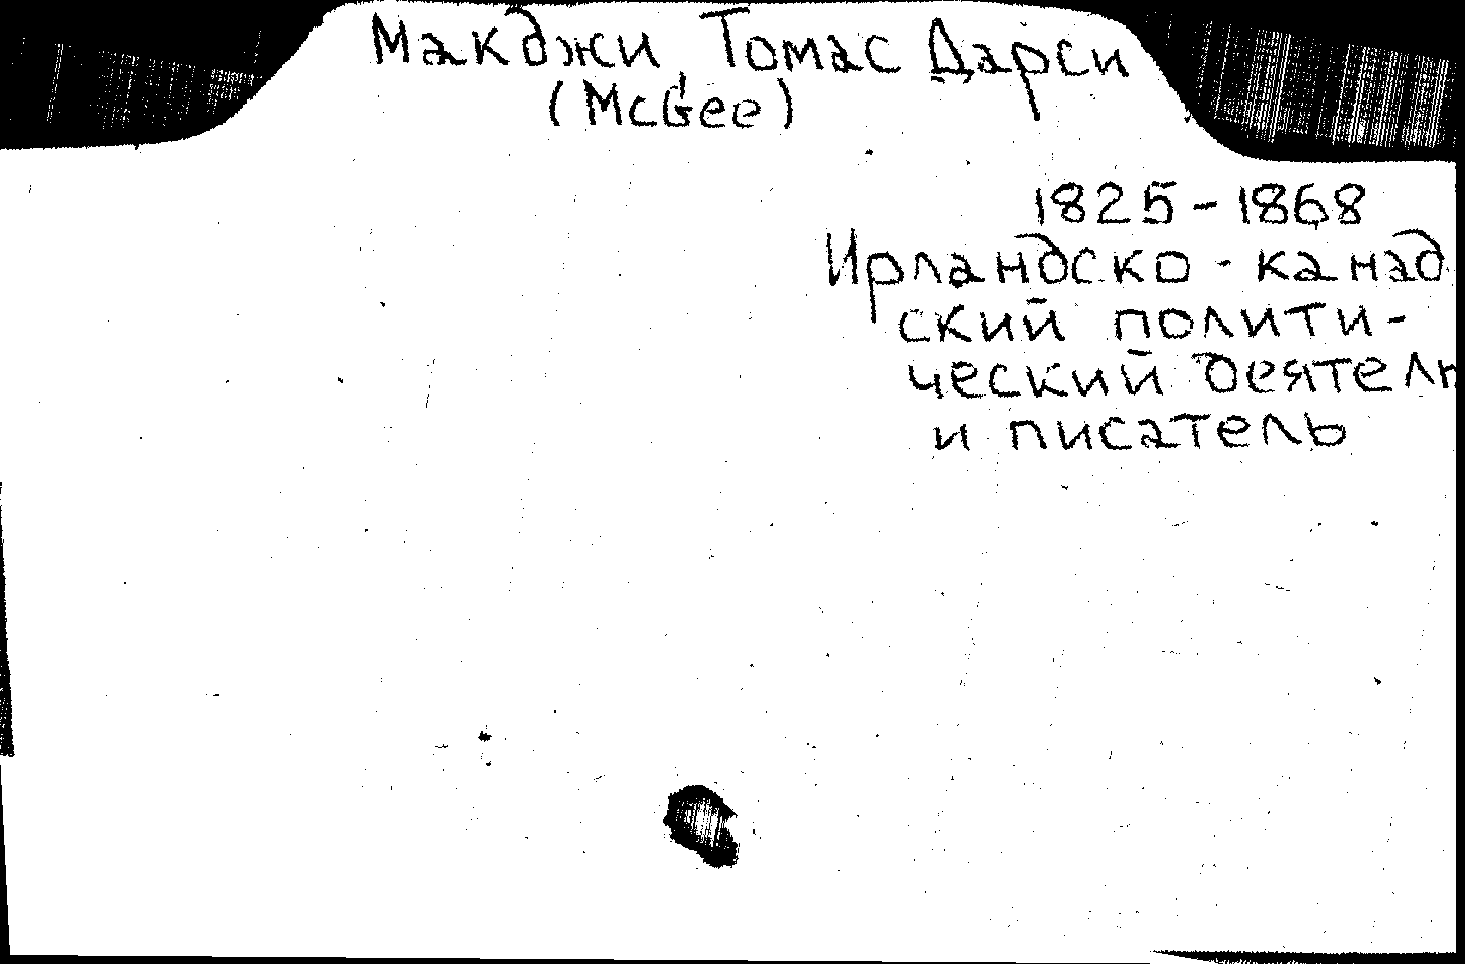 Макджи, Томас Дарси
(McGee)
1825-1868
Ирландско-канад
ский полити-
ческий деятель
и писатель